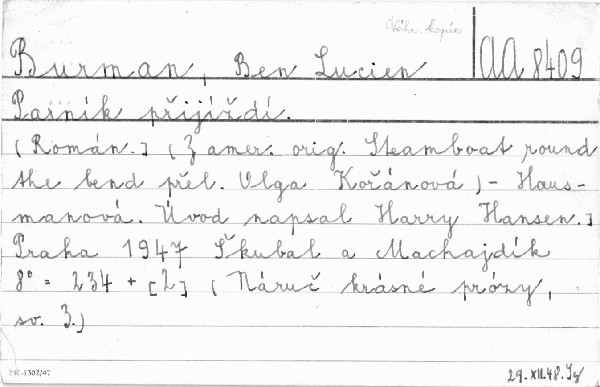 Náhr. kopie
Burman, Ben Lucien AA 8409
Parník přijíždí.
[Román.] (Z amer. orig. Steamboat round
the bend přel. Olga Kořánová) - Haus-
manová. Úvod napsal Harry Hansen.]
Praha 1947 Škubal a Machajdík
8° = 234 + [2] (Náruč krásné prózy,
sv. 3.)
29.XII.48.